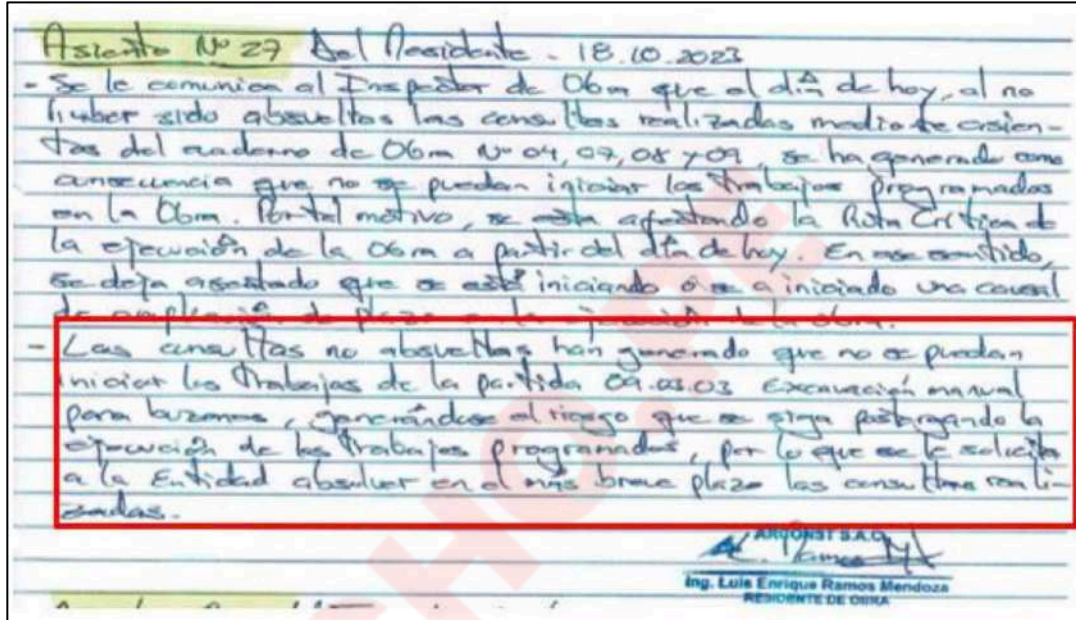 Asiento Nº 27 Del Residente - 18.10.2023
- Se le comunica al Inspector de Obra que el día de hoy, al no
haber sido absueltas las consultas realizadas mediante asien-
tos del cuaderno de Obra Nº 04, 07, 08 y 09, se ha generado como
consecuencia que no se puedan iniciar los trabajos programados
en la Obra. Por tal motivo, se esta afectando la Ruta Crítica de
la ejecución de la Obra a partir del día de hoy. En ese sentido,
se deja asentado que se está iniciando o se a iniciado una causal
de ampliación de plazo en la ejecución de la obra.
- Las consultas no absueltas han generado que no se puedan
iniciar los trabajos de la partida 09.03.03 Excavación manual
para buzones, generándose el riesgo que se siga postergando la
ejecución de los trabajos programados, por lo que se le solicita
a la Entidad absolver en el más breve plazo las consultas reali-
zadas.
ARQONST S.A.C.
Ing. Luis Enrique Ramos Mendoza
RESIDENTE DE OBRA